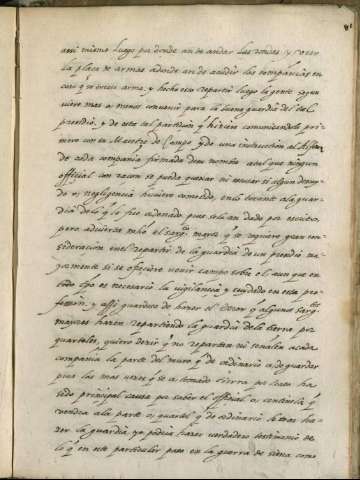 assi mismo luego por donde an de andar las rondas, y veer
la plaça de armas adonde an de acudir las compañias en
caso q̃ se tocase arma, y hecho esto repartir luego la gente segun
viere mas o menos convenir para la buena guardia del tal
presidio, y de este tal particion q̃ hiziere comunicandolo pri
mero con su Maestro de Campo q̃ de una instruction al Alferez
de cada compañia firmada de su nombre a tal que ningun
official con razon se pueda quexar ni escusar si algun descuy
do o negligencia huviere cometido, en lo tocante a la guar
dia de lo q̃ le fue ordenado pues se le an dado por escrito,
pero advierta mas el Sargᵗᵒ mayor q̃ se requiere gran con
sideracion en el repartir de la guardia de un presidio ma
yormente si se ofreciere venir campo sobre el, aunque en
todo tpo es necesario la vigilancia y cuydado en esta pro
fesion, y assi guardese de hazer el error q̃ algunos Sargᵗᵒˢ
mayores hazen repartiendo la guardia de la tierra por
quarteles, quiero dezir q̃ no reparten ni señalen a cada
compañia la parte del muro q̃ de ordinario a de guardar
pues las mas vezes q̃ se a tomado tierra por trato ha
sido principal causa por saber el official o centinela q̃
vendia a la parte o quartel q̃ de ordinario le mas ha
zer la guardia, ya podria hazer verdadero testimonio de
lo q̃ en este particular paso en la guerra de Siena como